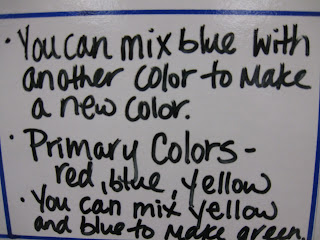 · You can mix blue with
another color to make
a new color.
· Primary Colors -
red, blue, yellow
· You can mix yellow
and blue to make green.